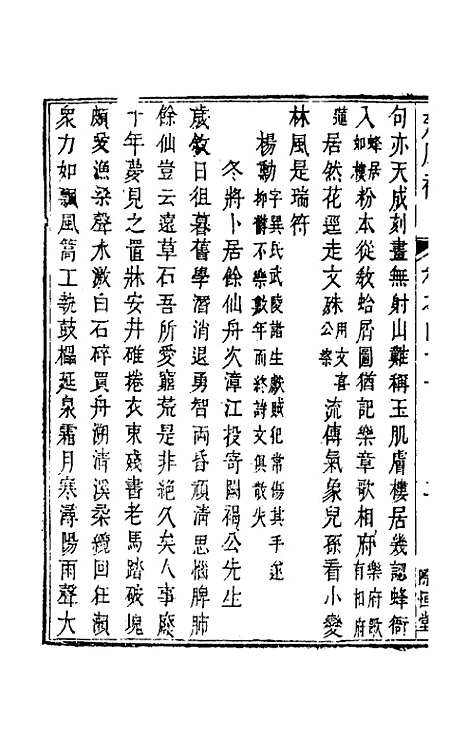 句亦天成刻畫無射山難稱玉肌膚樓居幾認蜂衙
蜂居如樓入粉本從教蛤屑圖猶記樂章歌相府樂府歌有相府
蓮居然花逕走文殊用文喜公案流傳氣象兒孫看小變
林風是瑞符
楊勷字異氏武陵諸生獻賊犯常傷其手遂抑鬱不樂數年而終詩文俱散失
冬將卜居餘仙舟次漳江投寄闖褐公先生
歲敘日徂暮舊學潛消退勇智両昏頑清思惱脾肺
餘仙豈云遠草石吾所愛窮荒是非絕久矣人事廢
十年夢見之置牀安井碓捲衣束殘書老馬踏破塊
頗愛漁梁聲水激白石碎買舟溯清溪朶纜回狂瀨
衆力如飄風篙工執鼓櫑延泉霜月寒潯陽雨聲大